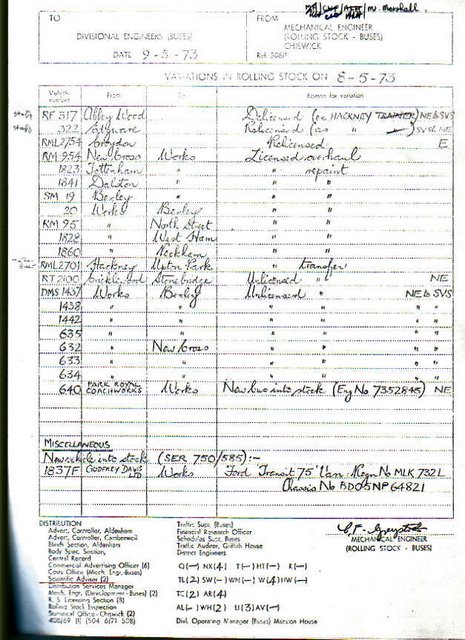 TO
FROM
M. Marshall
DIVISIONAL ENGINEERS (BUSES)
MECHANICAL ENGINEER
(ROLLING STOCK - BUSES)
CHISWICK
DATE 9-5-73
Ref. 5080
VARIATIONS IN ROLLING STOCK ON 8-5-73
Vehicle number From To Reason for variation
RF 317 Abbey Wood Delicensed (ex HACKNEY TRAINER) NE & SVS
322 Edgware Relicensed (as " ) SVS & NE
RML2754 Croydon Relicensed E
RM 954 New Cross Works Licensed overhaul
1823 Tottenham " " repaint
1841 Dalston " " "
SM 19 Bexley " " "
20 Works Bexley " "
RM 95 " North Street " "
1828 " West Ham " "
1860 " Peckham " "
RML2701 Hackney Upton Park " transfer
RT 2100 Stonebridge Unlicensed " NE
DMS 1437 Works Bexley Unlicensed " NE & SVS
1438 " " " " " "
1442 " " " " " "
635 " " " " " "
632 " New Cross " " " "
633 " " " " " "
634 " " " " " "
640 PARK ROYAL COACHWORKS Works New bus into stock (Eng No 7352845) NE
MISCELLANEOUS
New vehicle into stock (SER 750/585):-
1837F GODFREY DAVIS LTD Works Ford Transit 75" Van. Regn No MLK 732L
Chassis No BD05NP64821
DISTRIBUTION
Advert. Controller, Aldenham
Advert. Controller, Camberwell
Body Spec. Section,
Central Record
Commercial Advertising Officer (6)
Costs Office (Mech. Engr. Buses)
Scientific Adviser (2)
Distribution Services Manager
Mech. Engr. (Development - Buses) (2)
R. S. Licensing Section (3)
Rolling Stock Inspection
Statistical Office - Chiswick (2)
408/69 (I) (504 6/71 508)
Traffic Supt. (Buses)
Financial Research Officer
Schedules Supt. Buses
Traffic Auditor, Griffith House
District Engineers
Q(—) NX(4) T(—) HT(—) R(—)
TL(2) SW(—) WH(—) W(4) HW(—)
TC(2) AR(4)
AL(—) WH(2) U(3) AV(—)
Divl. Operating Manager (Buses) Mansion House
MECHANICAL ENGINEER
(ROLLING STOCK - BUSES)